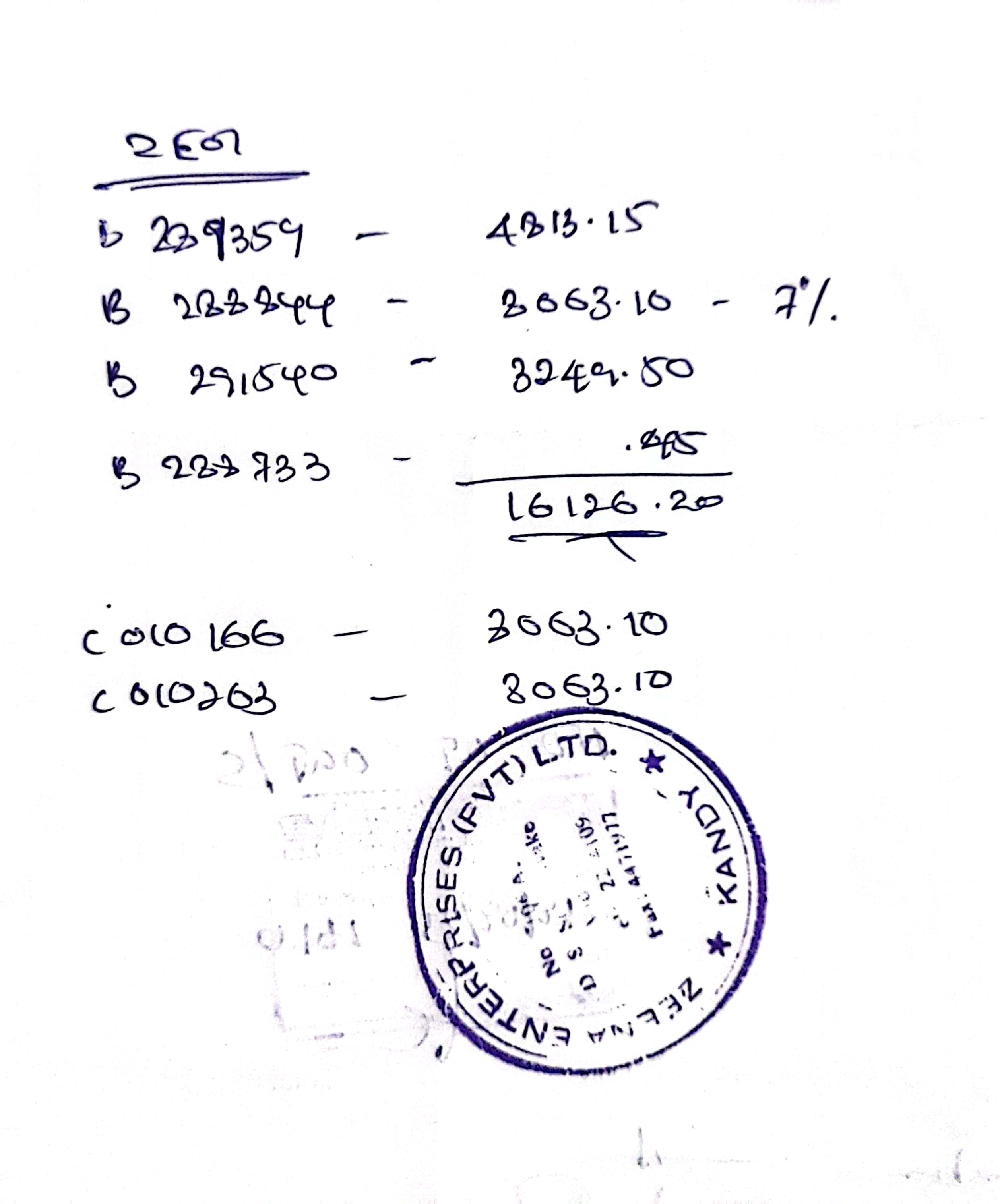 B 289359 - 4813.15
B 288844 - 8063.10 - 7%
B 291540 - 3249.50
B 288733 - .45
16126.20
C 010166 - 8063.10
C 010263 - 8063.10
ZEENA ENTERPRISES (PVT) LTD. ★ KANDY ★
NO
Fax: 4471977